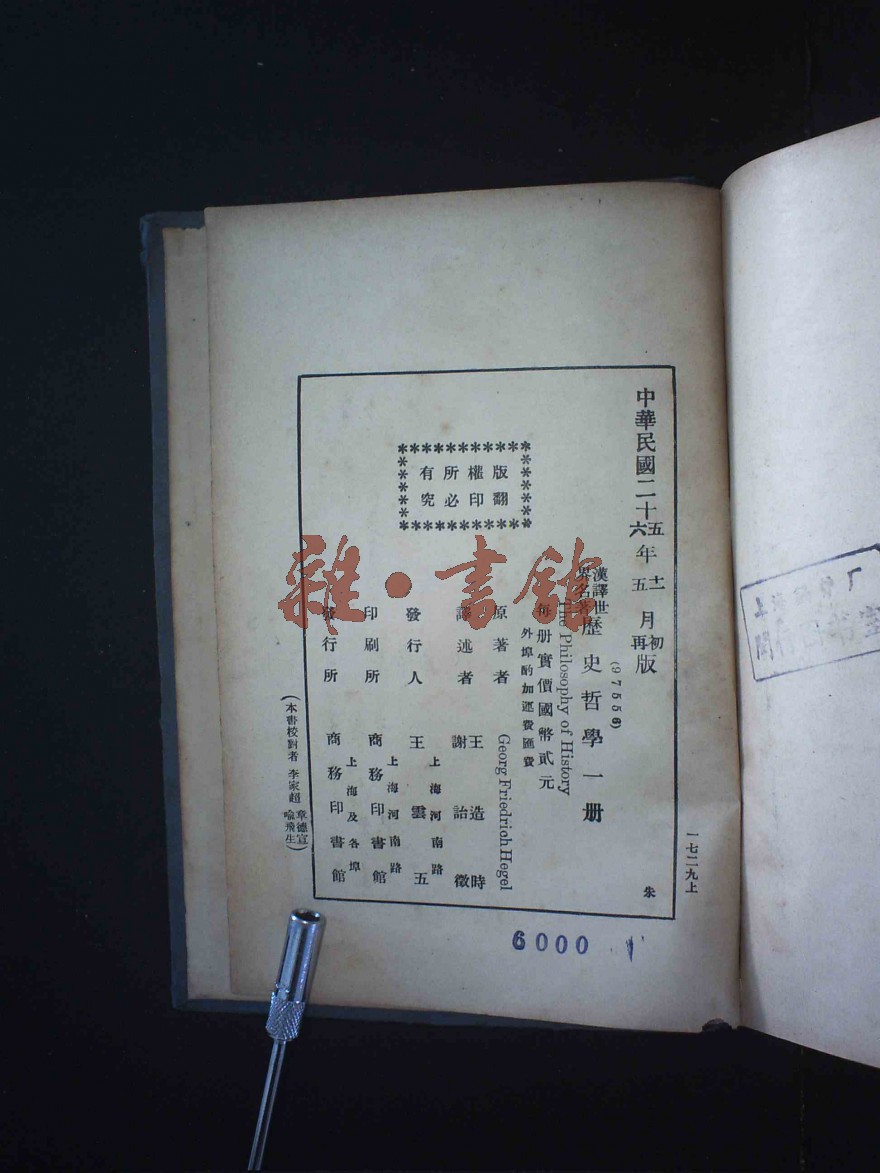 中華民國二十五年十二月初版
六年五月再版
(97556)
漢譯世界名著 歷史哲學一册
The Philosophy of History
每册實價國幣貳元
外埠酌加運費匯費
原著者 Georg Friedrich Hegel
譯述者 王造時 謝詒徵
發行人 王雲五
上海河南路
印刷所 商務印書館
上海河南路
發行所 商務印書館
上海及各埠
版權所有
翻印必究
(本書校對者 李家超 章德宣 喻飛生)
一七二九上
朱
6000
雜·書館